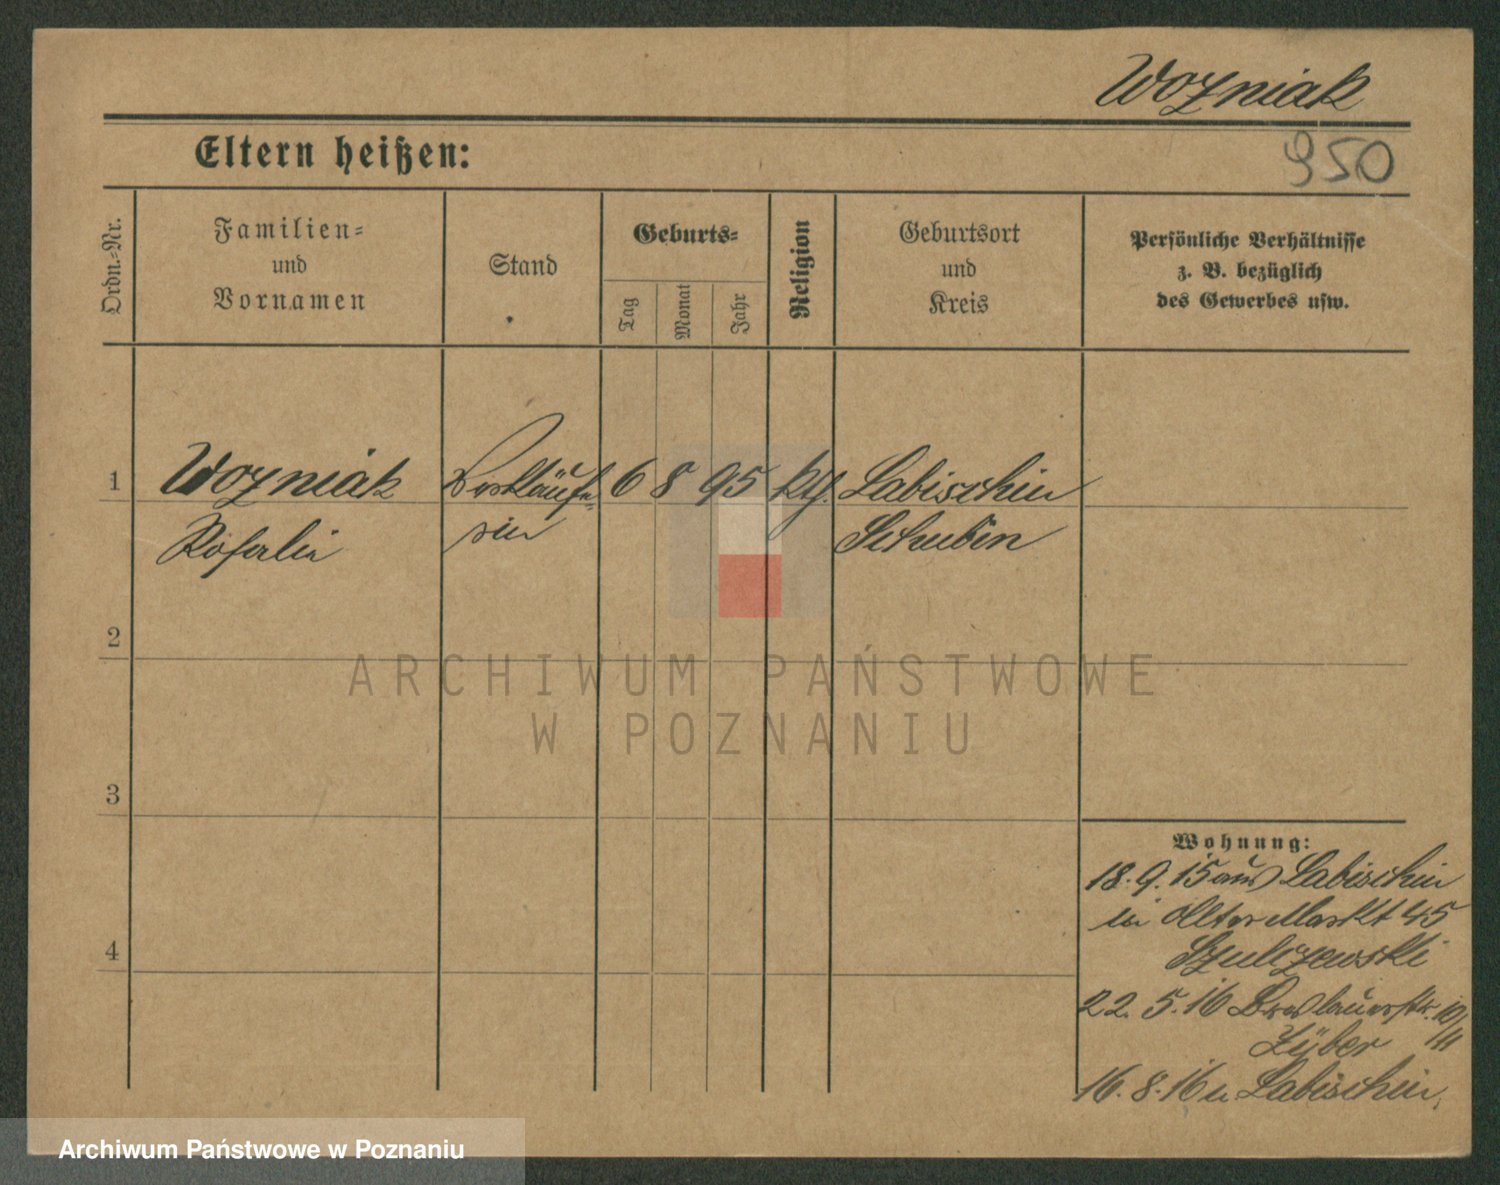 Wozniak
950
Eltern heißen:
Ordn.-Nr.
Familien-
und
Vornamen
Stand
Geburts-
Tag
Monat
Jahr
Religion
Geburtsort
und
Kreis
Persönliche Verhältnisse
z. B. bezüglich
des Gewerbes usw.
1 Wozniak Verkäufe- 6 8 95 kth. Labischin
Rosalie rin Schubin
2
ARCHIWUM PAŃSTWOWE
W POZNANIU
3
Wohnung:
18.9.15 aus Labischin
in Alter Markt 45
Szulczewski
4
22.5.16 Breslauerstr. 10/III
Züber
16.8.16 n. Labischin.
Archiwum Państwowe w Poznaniu